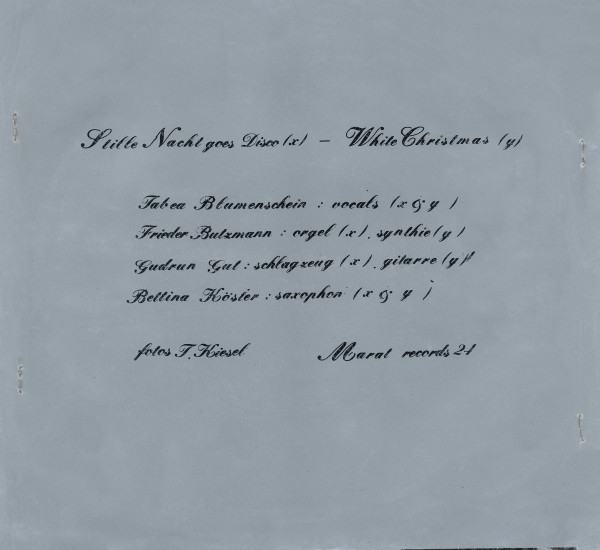 Stille Nacht goes Disco (x) – White Christmas (y)
Tabea Blumenschein : vocals (x & y )
Frieder Butzmann : orgel (x), synthie (y )
Gudrun Gut : schlagzeug (x), gitarre (y)
Bettina Köster : saxophon (x & y )
fotos T. Kiesel Marat records 21